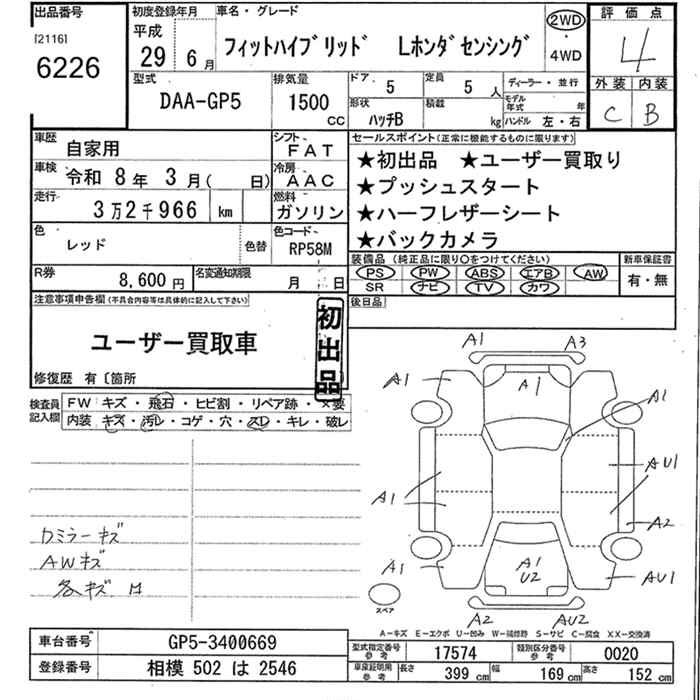 出品番号
[2116]
6226
初度登録年月
平成
29年 6月
車名・グレード
フィットハイブリッド Lホンダセンシング
2WD
・
4WD
評価点
4
外装 内装
C B
型式
DAA-GP5
排気量
1500
CC
ドア
5
定員
5人
ディーラー・並行
形状
ハッチB
積載
kg
モデル年式
年
ハンドル 左・右
車歴
自家用
シフト
FAT
車検
令和 8年 3月( 日)
冷房
AAC
走行
3万2千966 km
燃料
ガソリン
色
レッド
色替
色コード
RP58M
R券
8,600円
名変通知期限
月 日
セールスポイント(正常に機能するものに限ります)
★初出品 ★ユーザー買取り
★プッシュスタート
★ハーフレザーシート
★バックカメラ
装備品 (純正品に限り○をつけてください)
PS PW ABS エアB AW
SR ナビ TV カワ
新車保証書
有・無
後日品
注意事項申告欄(不具合内容等は具体的に記入して下さい)
ユーザー買取車
初出品
修復歴 有〔箇所
検査員記入欄
FW キズ・飛石・ヒビ割・リペア跡・×要
内装 キズ・汚レ・コゲ・穴・スレ・キレ・破レ
カミラーキズ
AWキズ
各キズ
A1 A3
A1 A1 A1
A1 AU1
A2
A1 A1 U2 AU1
スペア
A2 AU2
A-キズ E-エクボ U-凹み W-補修跡 S-サビ C-腐食 XX-交換済
車台番号
GP5-3400669
登録番号
相模 502 は 2546
型式指定番号 参考
17574
類別区分番号 参考
0020
車庫証明用 参考
長さ 399 cm
幅 169 cm
高さ 152 cm